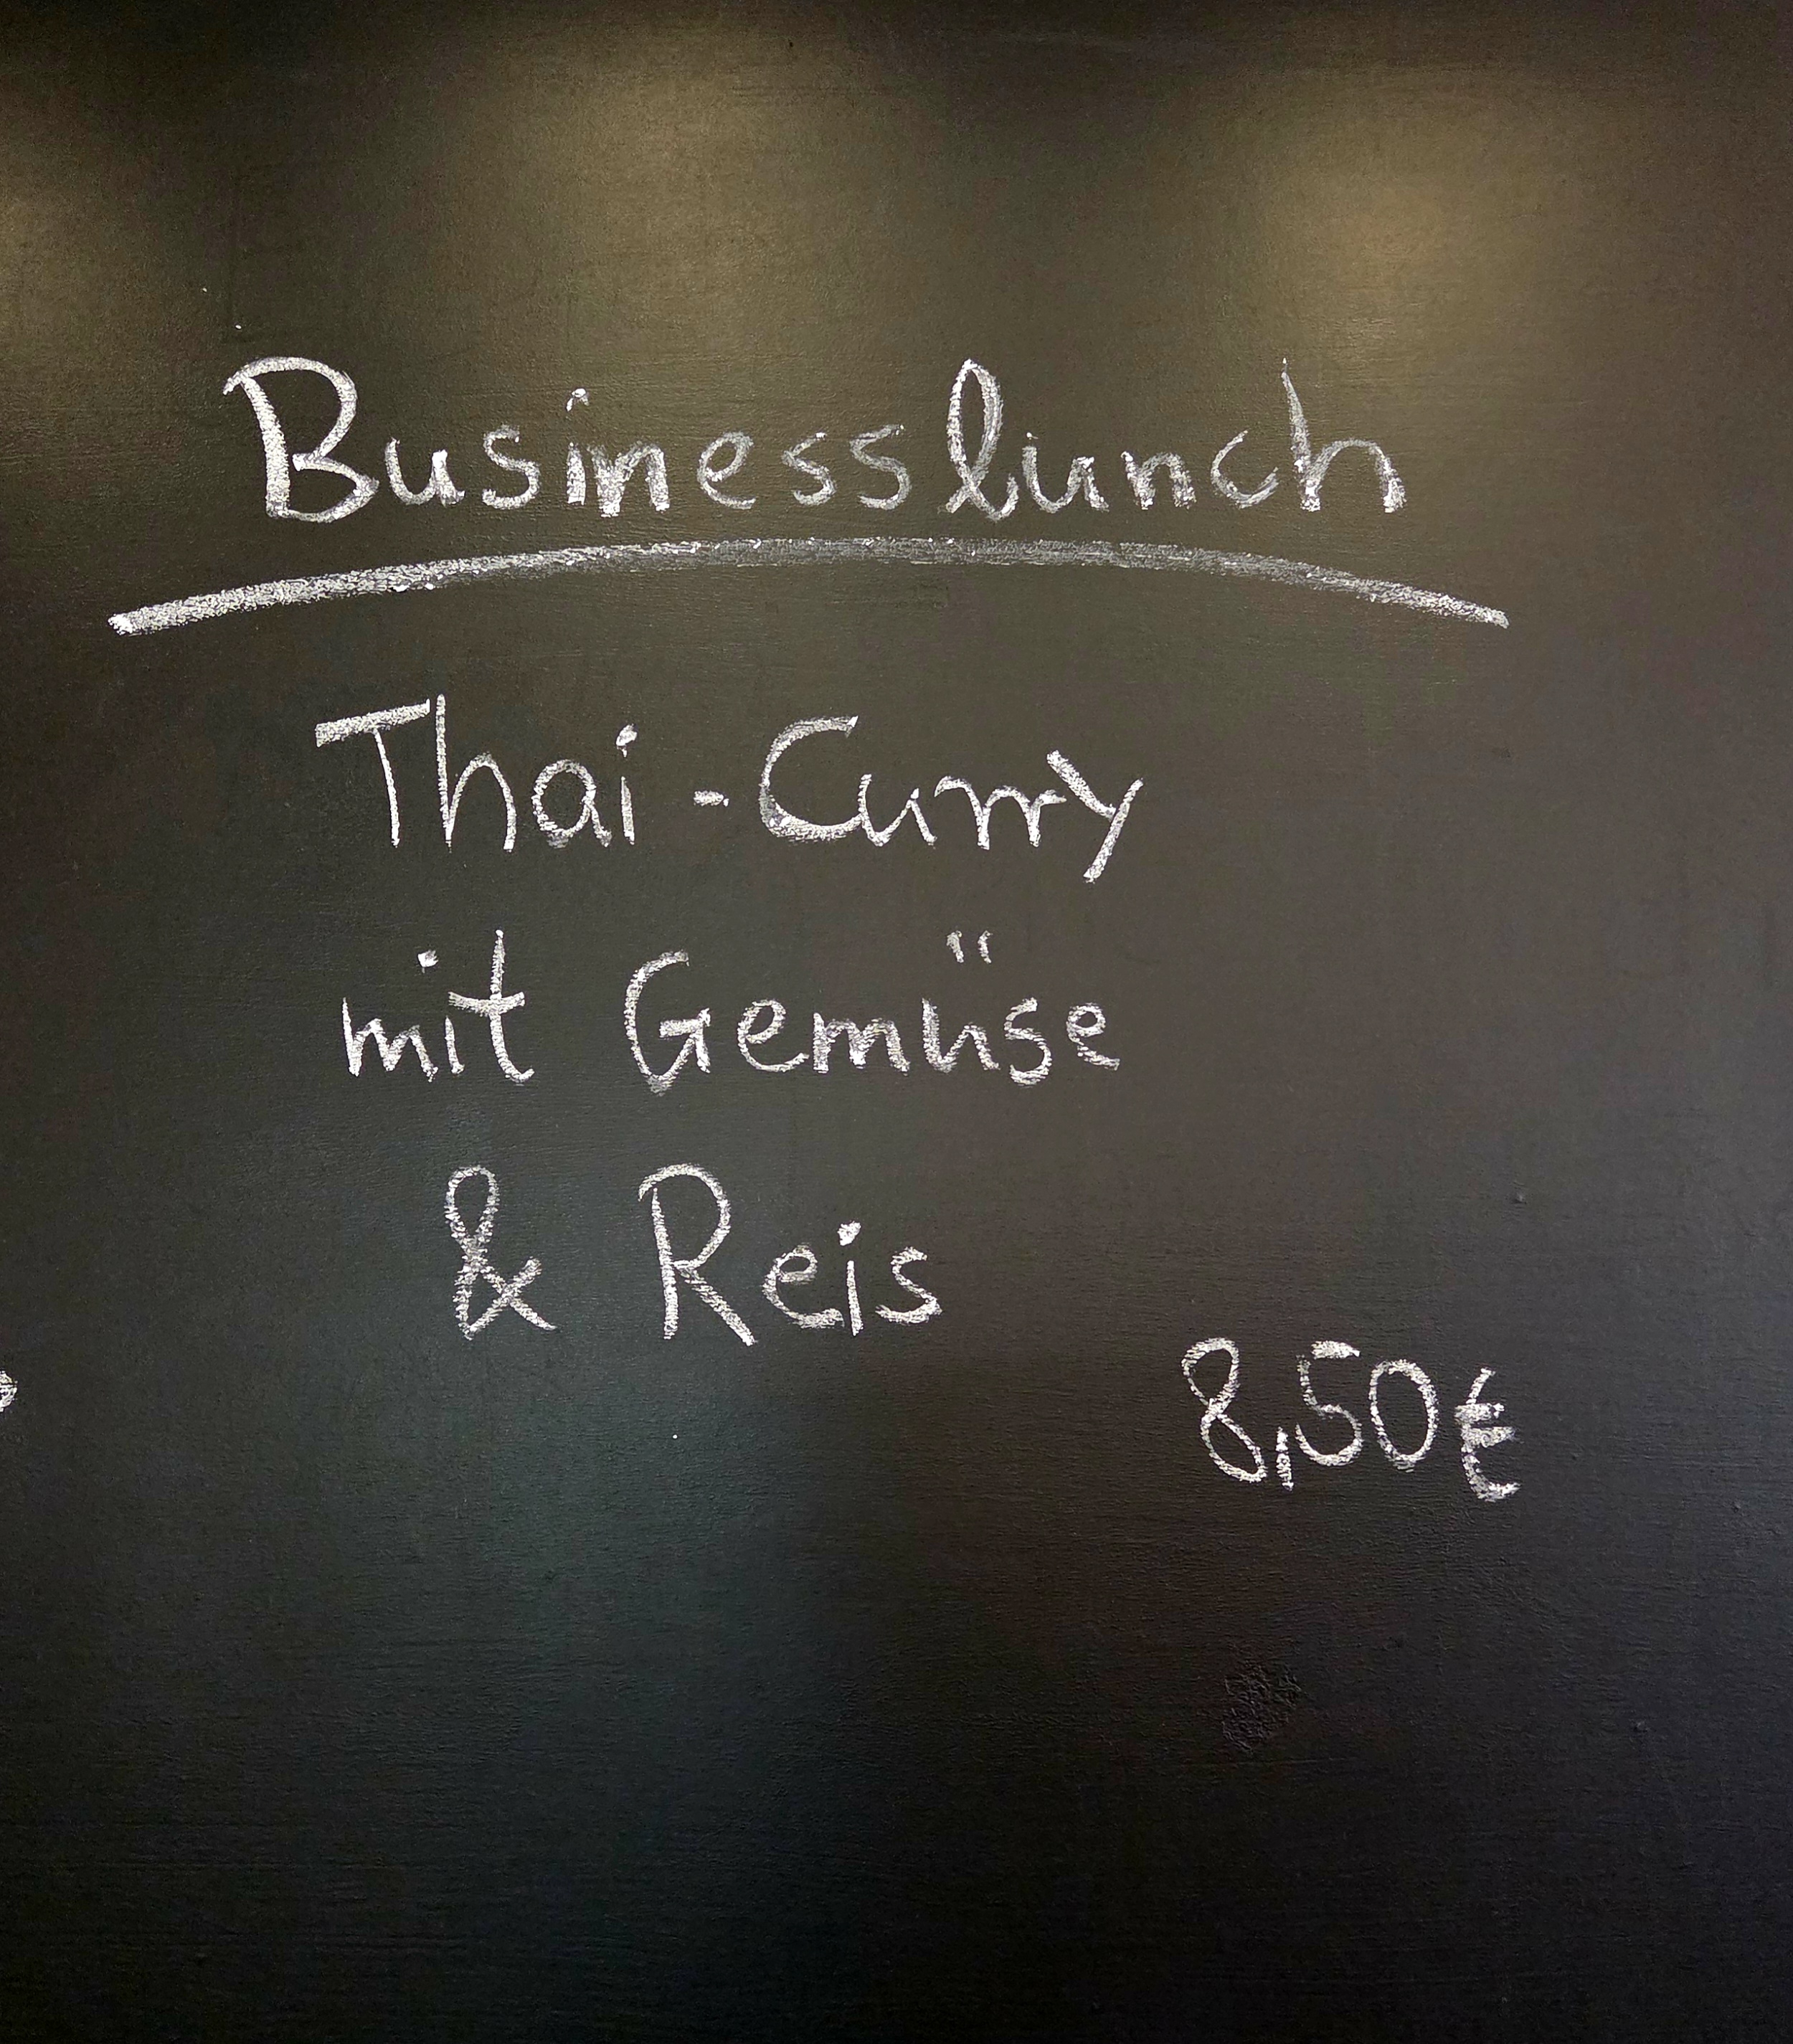 Businesslunch
Thai-Curry
mit Gemüse
& Reis
8,50€